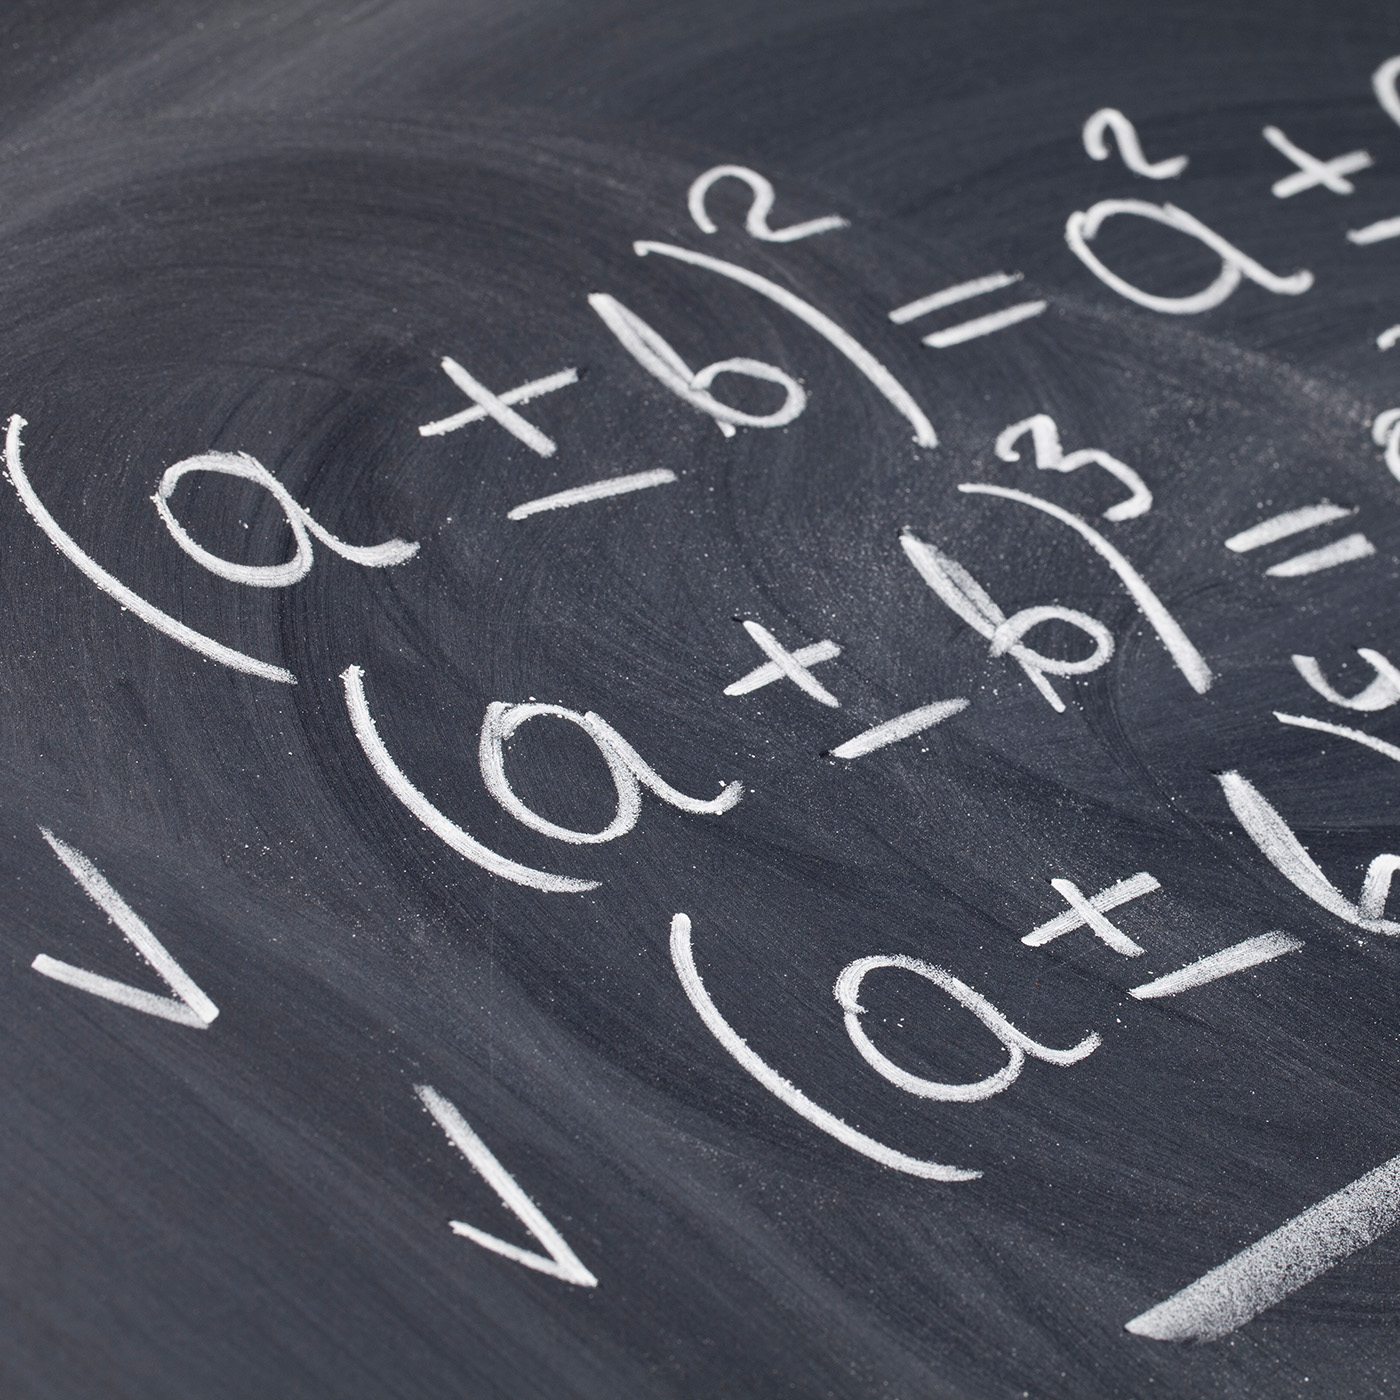 (a ± b)² = a² ±
✓ (a ± b)³ =
✓ (a ± b)⁴